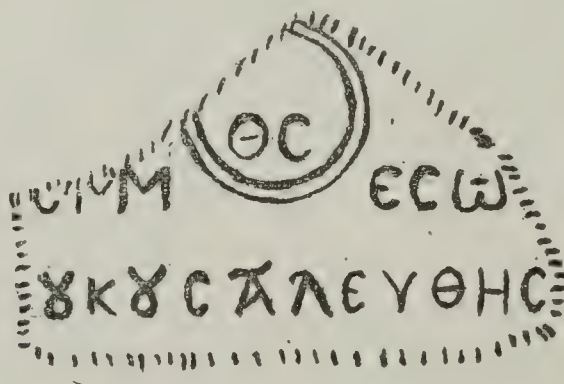 ΘC
Μ ЄCω̄
ȣΚȣCᾹΛЄΥΘΗC